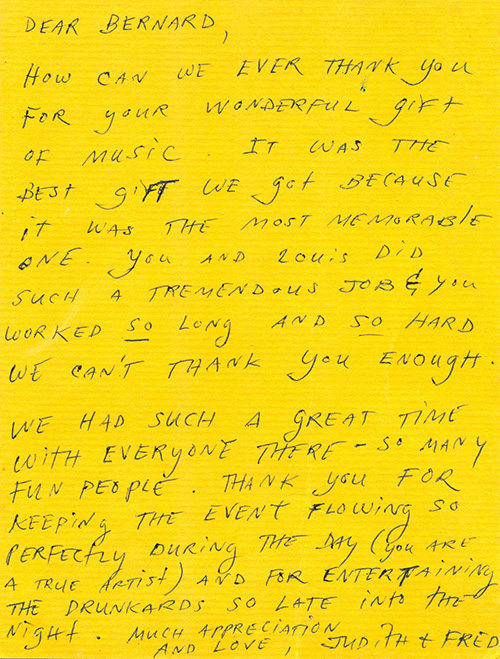 DEAR BERNARD,
HOW CAN WE EVER THANK you
FOR your WONDERFUL gift
OF MUSIC. IT WAS THE
BEST gift WE got BECAUSE
it WAS THE MOST MEMORABLE
ONE. you AND LOUIS DID
SUCH A TREMENDOUS JOB & you
WORKED SO LONG AND SO HARD
WE CAN'T THANK you ENOUGH.
WE HAD SUCH A GREAT TIME
WITH EVERYONE THERE - SO MANY
FUN PEOPLE. THANK you FOR
KEEPING THE EVENT FLOWING SO
PERFECTLY DURING THE DAY (you ARE
A TRUE ARTIST) AND FOR ENTERTAINING
THE DRUNKARDS SO LATE INTO THE
NIGHT. MUCH APPRECIATION
AND LOVE, JUDITH & FRED